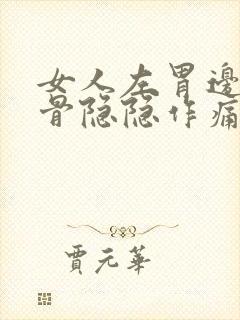 女人左胃邊
骨隐隐作痛
賈元華